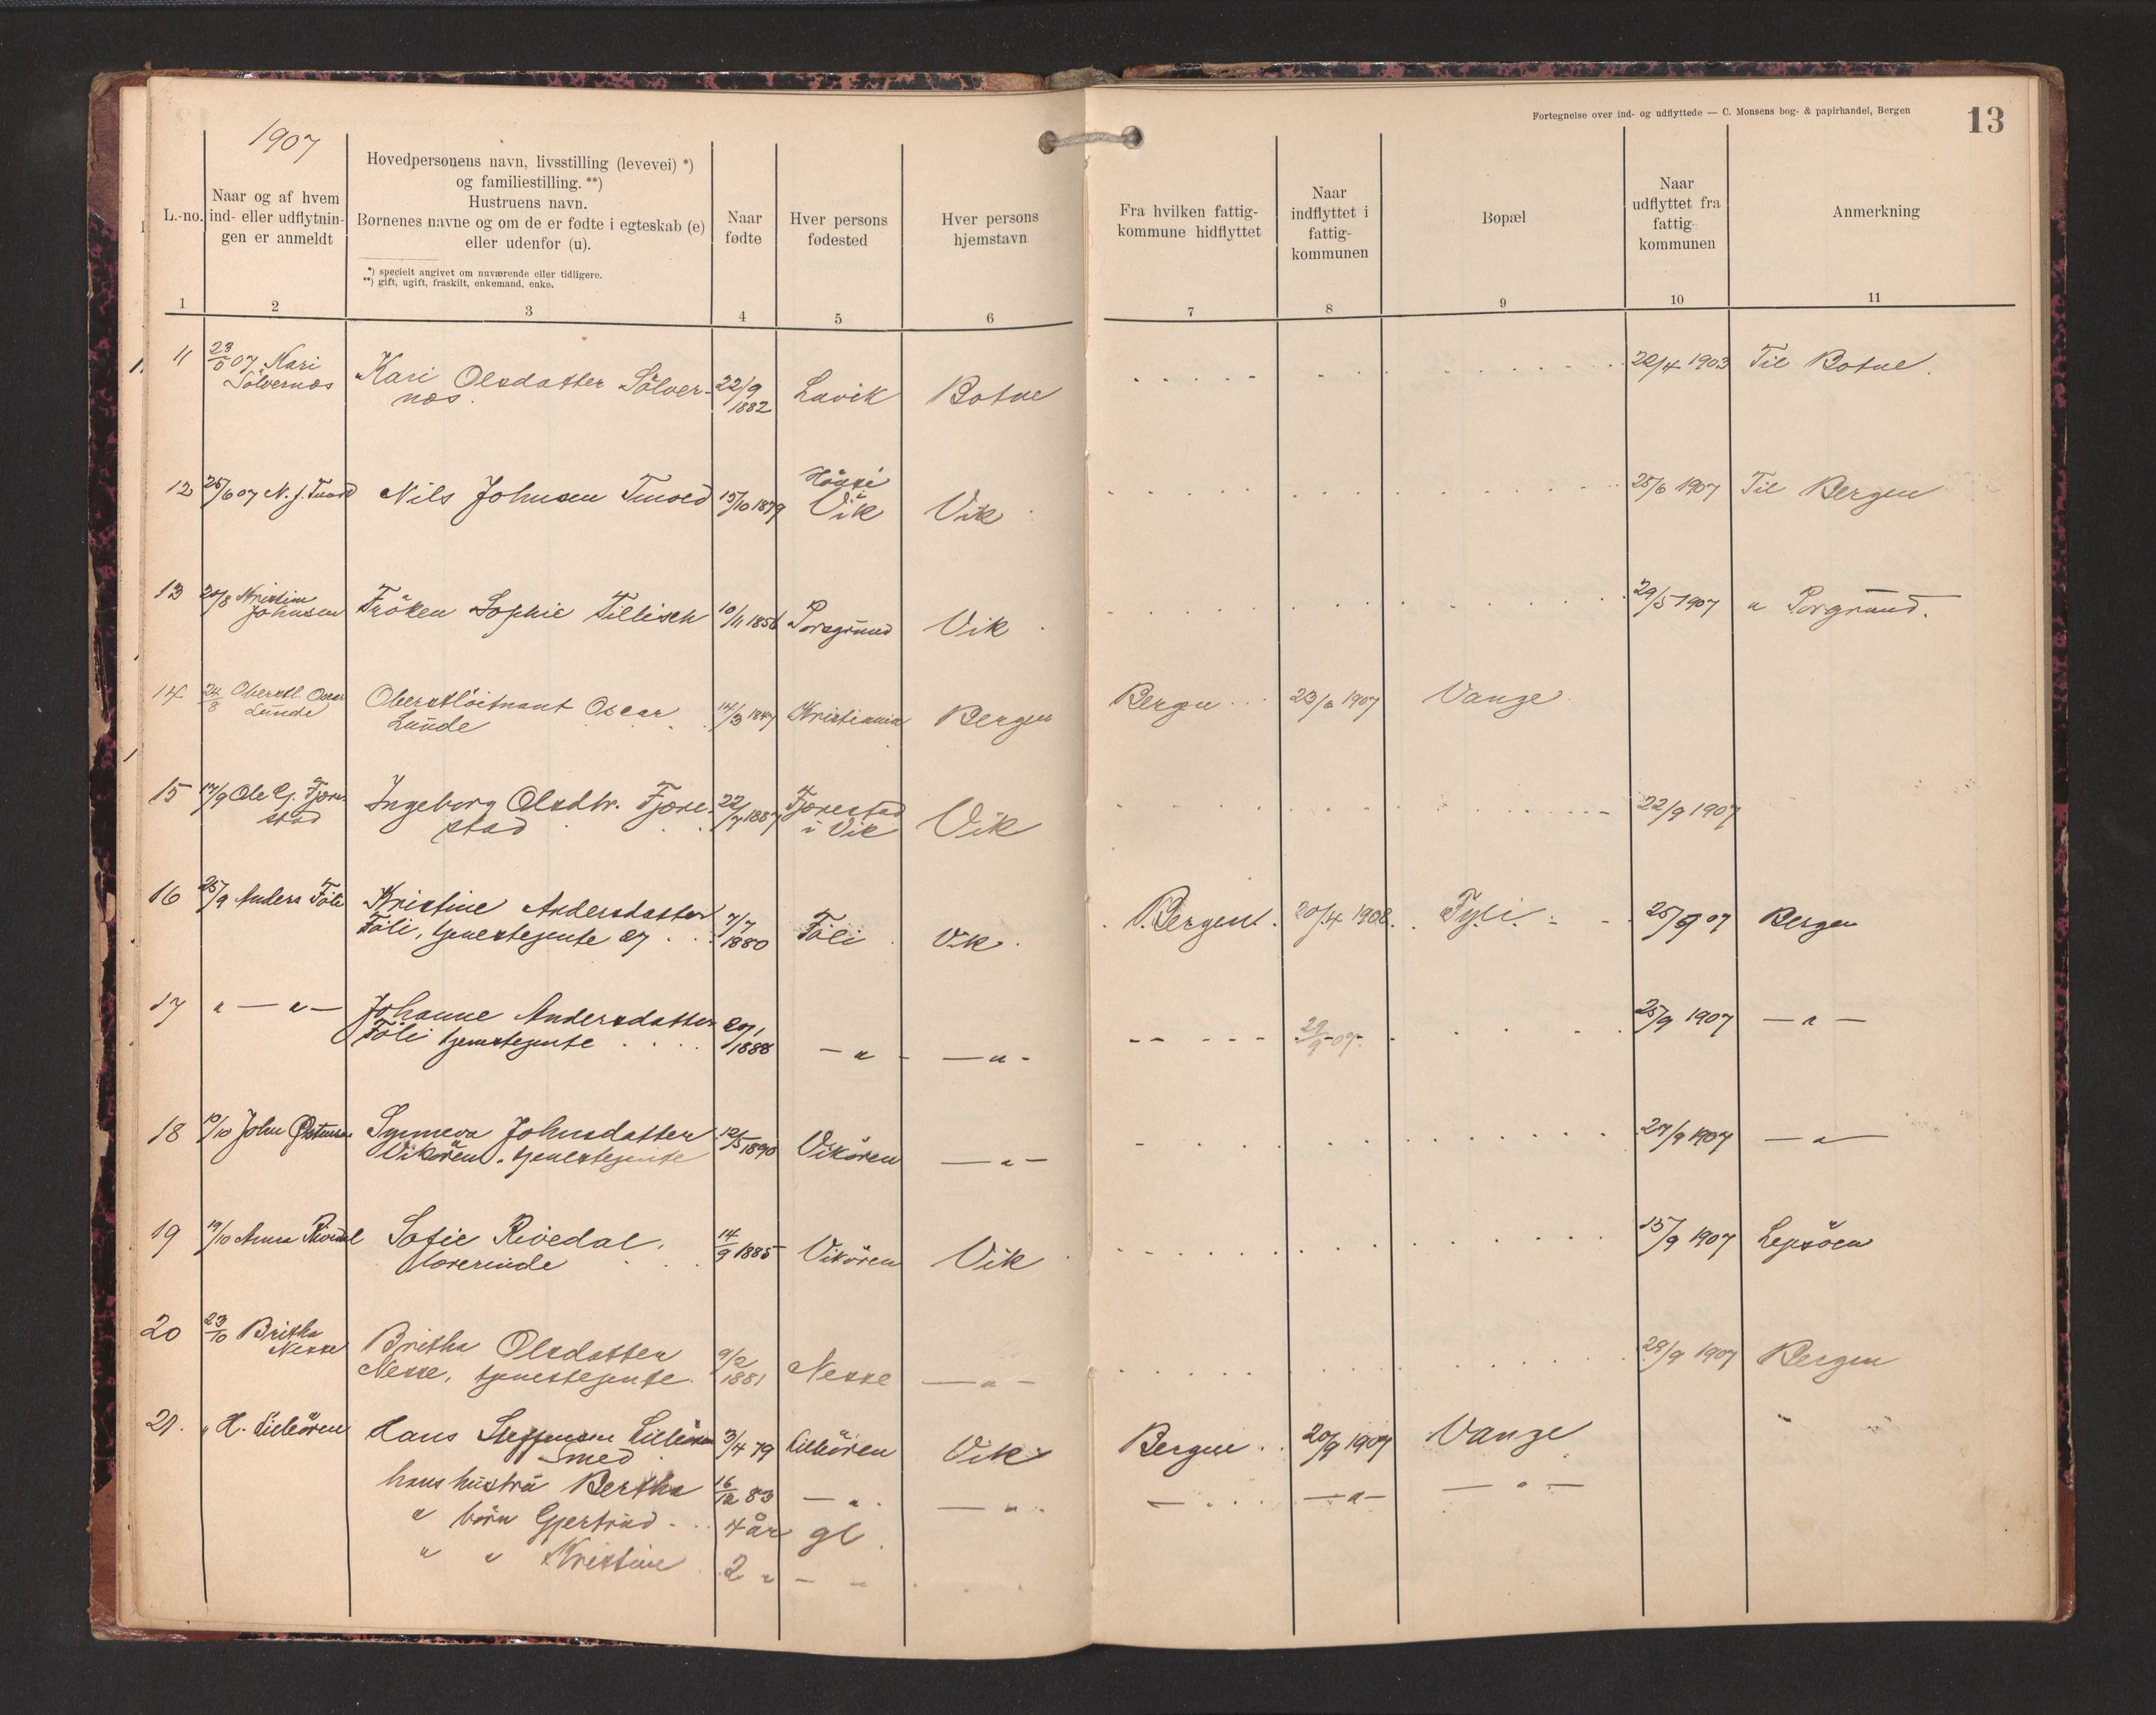 Fortegnelse over ind- og udflyttede — C. Monsens bog- & papirhandel, Bergen
13
1907
L.-no.
Naar og af hvem
ind- eller udflytnin-
gen er anmeldt
Hovedpersonens navn, livsstilling (levevei) *)
og familiestilling. **)
Hustruens navn.
Børnenes navne og om de er fødte i egteskab (e)
eller udenfor (u).
*) specielt angivet om nuværende eller tidligere.
**) gift, ugift, fraskilt, enkemand, enke.
Naar
fødte
Hver persons
fødested
Hver persons
hjemstavn
Fra hvilken fattig-
kommune hidflyttet
Naar
indflyttet i
fattig-
kommunen
Bopæl
Naar
udflyttet fra
fattig-
kommunen
Anmerkning
1 2 3 4 5 6 7 8 9 10 11
11 23/5 07. Kari Kari Olsdatter Sölver- 22/9 Lavik Botne 22/4 1903 Til Botne.
Sölvernæs næs. 1882
12 25/6 07 N. J. Tenold Nils Johnsen Tenold 15/10 1879 Vik Vik 25/6 1907 Til Bergen
13 20/8 Kristine Fröken Sophie Tillisch 10/11 1856 Porsgrund Vik 29/5 1907 " Porsgrund.
Johnsen
14 24/8 Oberstl. Oscar Oberstlöitnant Oscar 14/3 1847 Kristiania Bergen Bergen 23/6 1907 Vange
Lunde Lunde
15 17/9 Ole G. Fjære- Ingeborg Olsdtr. Fjære- 22/7 1887 Fjærestad Vik 22/9 1907
stad stad i Vik
16 25/9 Anders Föli Kristine Andersdatter 7/7 Föli Vik Bergen 20/4 1908 Fyli 25/9 07 Bergen
Föli, tjenestejente 1880
17 " — " — Johanne Andersdatter 29/1 — " — — " — 22/9 09 25/9 1907 — " —
Föli tjenestejente 1888
18 10/10 John Synneva Johnsdatter 12/5 1890 Vikören — " — 27/9 1907 — " —
Vikören. tjenestejente
19 19/10 Anna Rivedal Sofie Rivedal, 14/9 1885 Vikören Vik 15/9 1907 Lepsöen
lærerinde
20 23/10 Britha Britha Olsdatter 9/2 Nesse — " — 28/9 1907 Bergen
Nesse Nesse, tjenestejente. 1881
21. " H. Lilleören Hans Steffensen Lilleören 3/4 79 Lilleören Vik Bergen 20/9 1907 Vange
smed
hans hustru Bertha 16/12 83 — " — — " — — — " — — " —
" börn Gjertrud 4 år gl.
" " Kristine 2 " — "